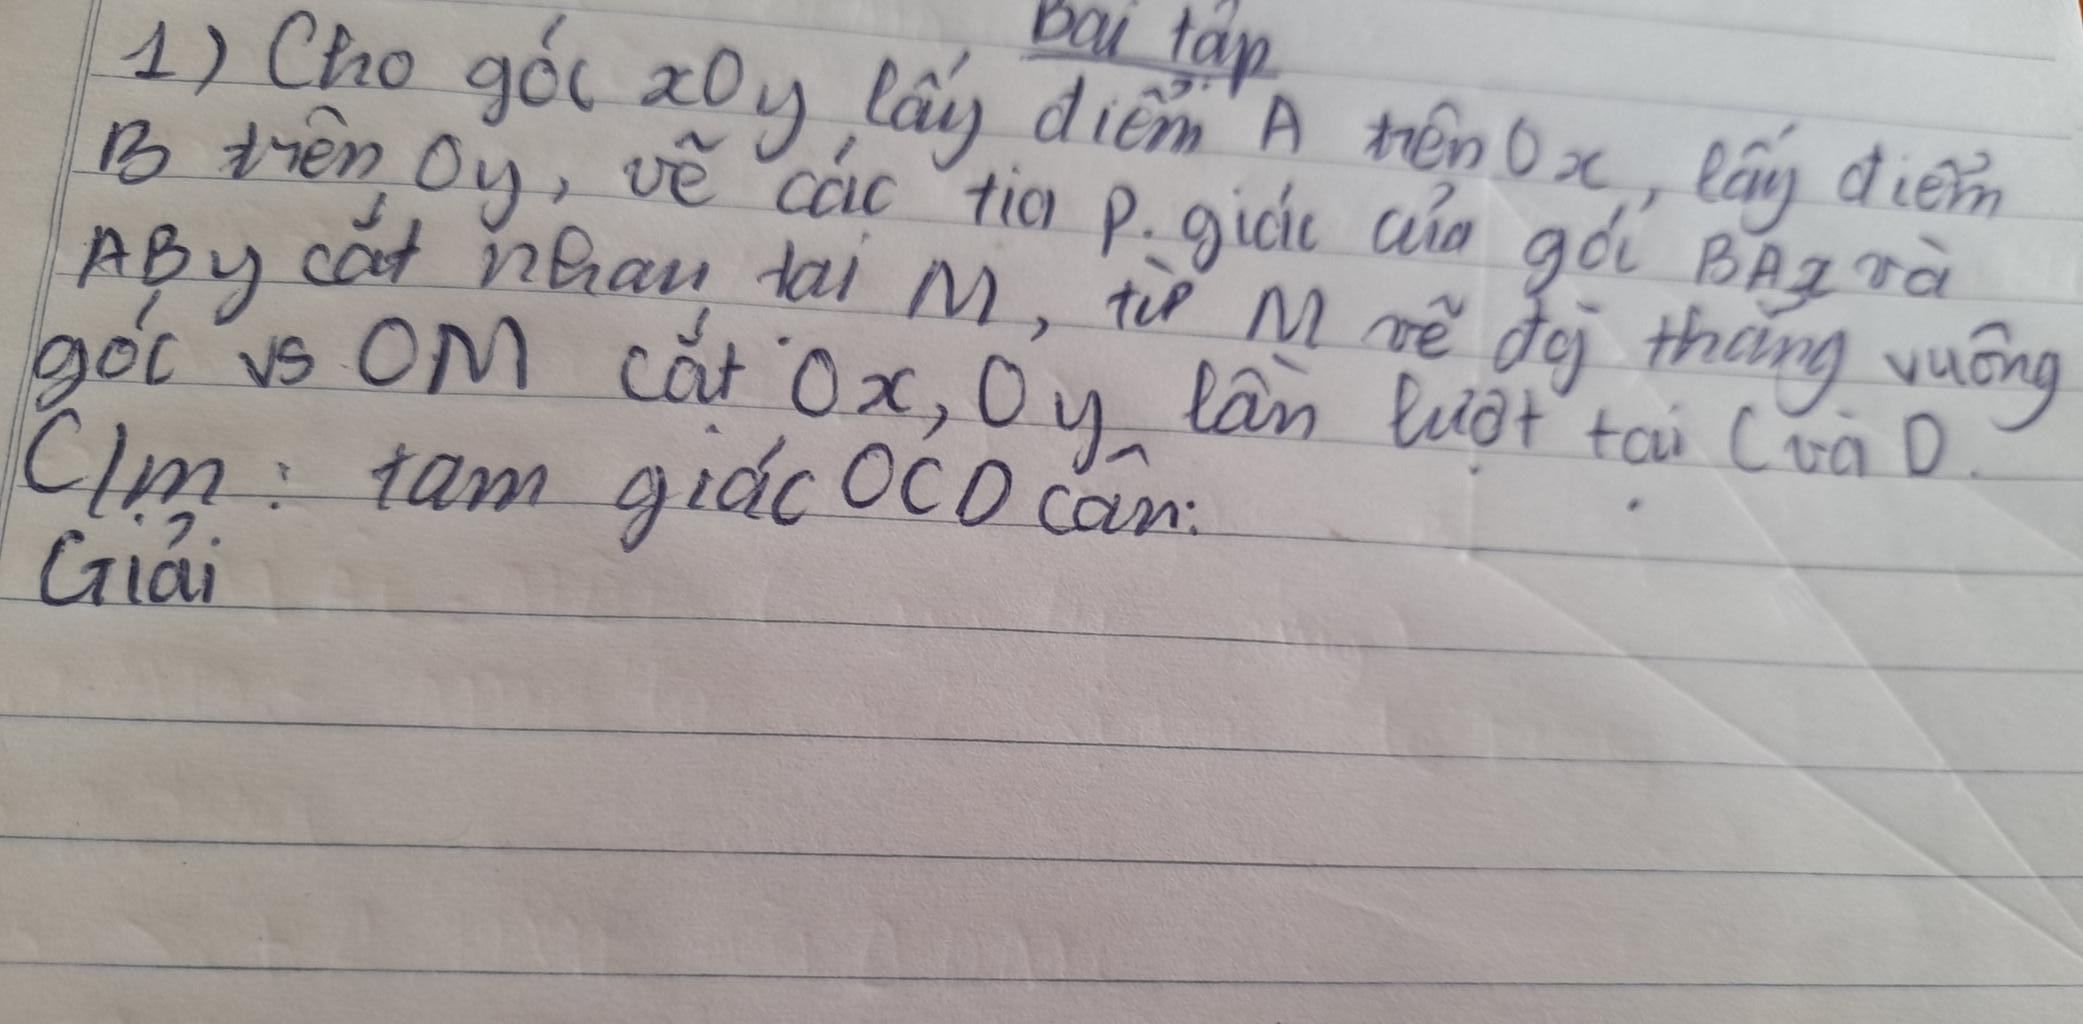 Bài tập
1) Cho góc xOy lấy điểm A trên Ox, lấy điểm
B trên Oy, vẽ các tia p.giác của góc BAx và
ABy cắt nhau tại M, từ M vẽ đg thẳng vuông
góc vs OM cắt Ox, Oy lần lượt tại C và D.
C/m: tam giác OCD cân.
Giải